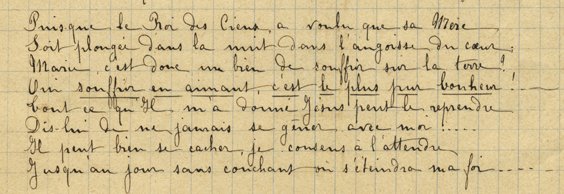 Puisque le Roi des Cieux a voulu que sa Mère
Soit plongée dans la nuit dans l'angoisse du cœur.
Marie, c'est donc un bien de souffrir sur la terre ?
Oui souffrir en aimant, c'est le plus pur bonheur !
Tout ce qu'Il m'a donné Jésus peut le reprendre
Dis-lui de ne jamais se gêner avec moi !.....
Il peut bien se cacher, je consens à l'attendre
Jusqu'au jour sans couchant où s'éteindra ma foi.....